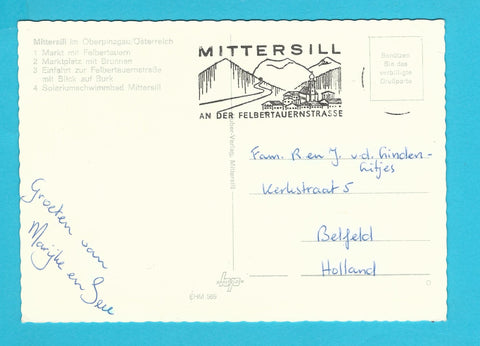 Mittersill im Oberpinzgau/Österreich
1 Markt mit Felbertauern
2 Marktplatz mit Brunnen
3 Einfahrt zur Felbertauernstraße
mit Blick auf Burk
4 Solariumschwimmbad Mittersill
MITTERSILL
AN DER FELBERTAUERNSTRASSE
Benützen
Sie das
verbilligte
Drucksporto
Verlag, Mittersill
Groeten van
Marijke en
Fam. R en J. v.d. Linden-
Hitjes
Kerkstraat 5
Belfeld
Holland
EHM 989